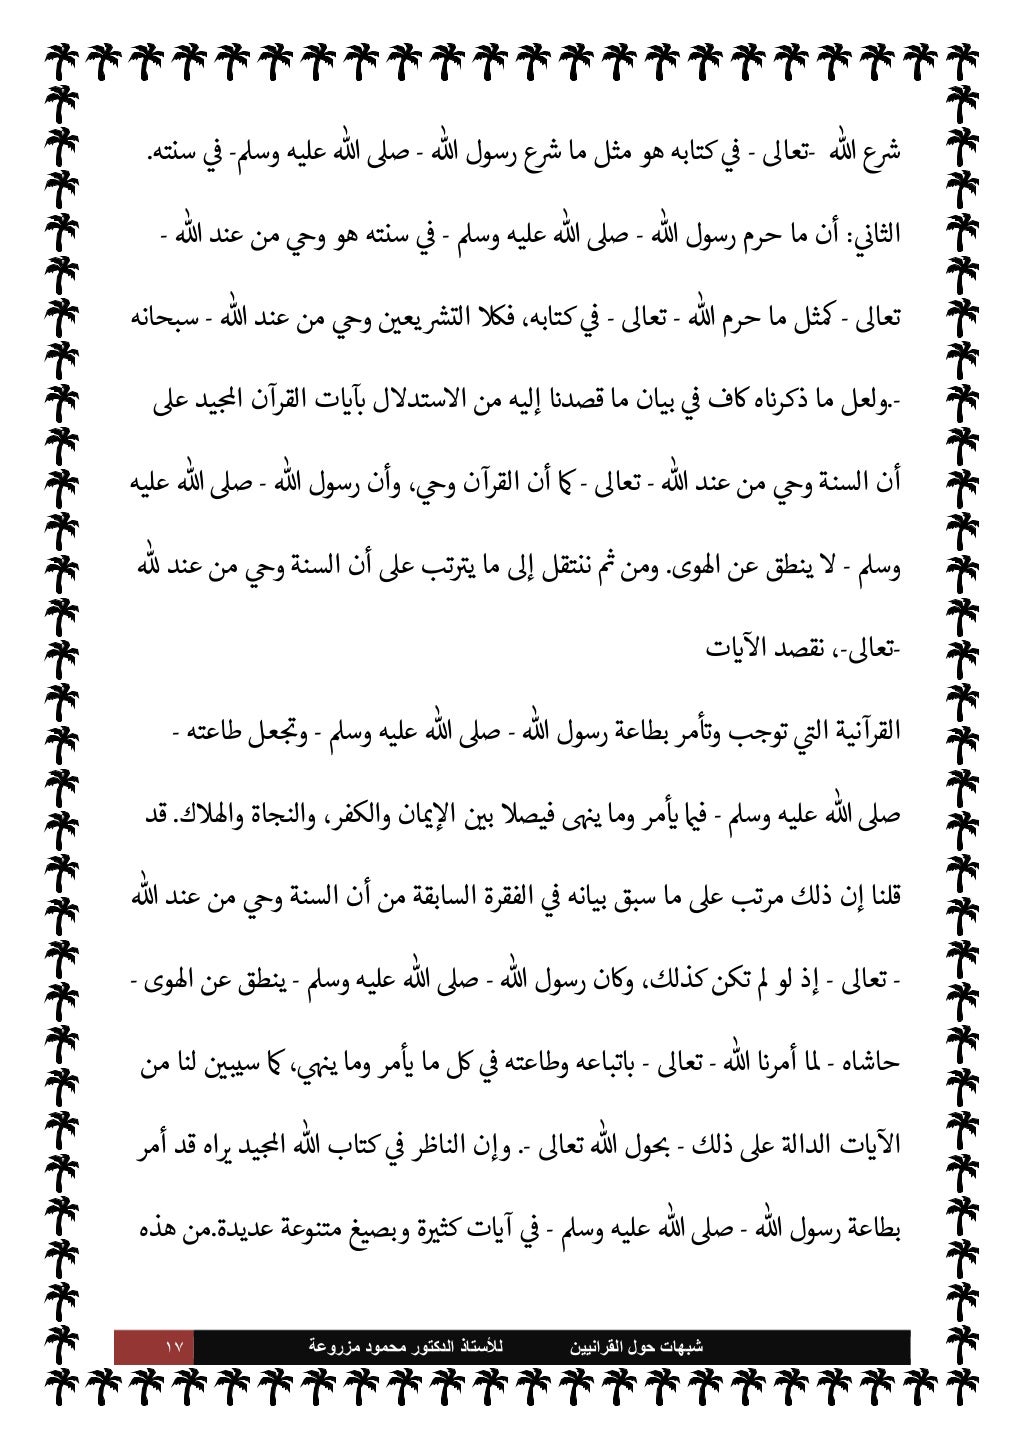 شرع الله -تعالى - في كتابه هو مثل ما شرع رسول الله - صلى الله عليه وسلم- في سنته.
الثاني: أن ما حرم رسول الله - صلى الله عليه وسلم - في سنته هو وحي من عند الله -
تعالى - كمثل ما حرم الله - تعالى - في كتابه، فكلا التشريعين وحي من عند الله - سبحانه
-.ولعل ما ذكرناه كاف في بيان ما قصدنا إليه من الاستدلال بآيات القرآن المجيد على
أن السنة وحي من عند الله - تعالى - كما أن القرآن وحي، وأن رسول الله - صلى الله عليه
وسلم - لا ينطق عن الهوى. ومن ثم ننتقل إلى ما يترتب على أن السنة وحي من عند لله
-تعالى-، نقصد الآيات
القرآنية التي توجب وتأمر بطاعة رسول الله - صلى الله عليه وسلم - وتجعل طاعته -
صلى الله عليه وسلم - فيما يأمر وما ينهى فيصلا بين الإيمان والكفر، والنجاة والهلاك. قد
قلنا إن ذلك مرتب على ما سبق بيانه في الفقرة السابقة من أن السنة وحي من عند الله
- تعالى - إذ لو لم تكن كذلك، وكان رسول الله - صلى الله عليه وسلم - ينطق عن الهوى -
حاشاه - لما أمرنا الله - تعالى - باتباعه وطاعته في كل ما يأمر وما ينهي، كما سيبين لنا من
الآيات الدالة على ذلك - بحول الله تعالى -. وإن الناظر في كتاب الله المجيد يراه قد أمر
بطاعة رسول الله - صلى الله عليه وسلم - في آيات كثيرة وبصيغ متنوعة عديدة.من هذه
شبهات حول القرانيين للأستاذ الدكتور محمود مزروعة ١٧